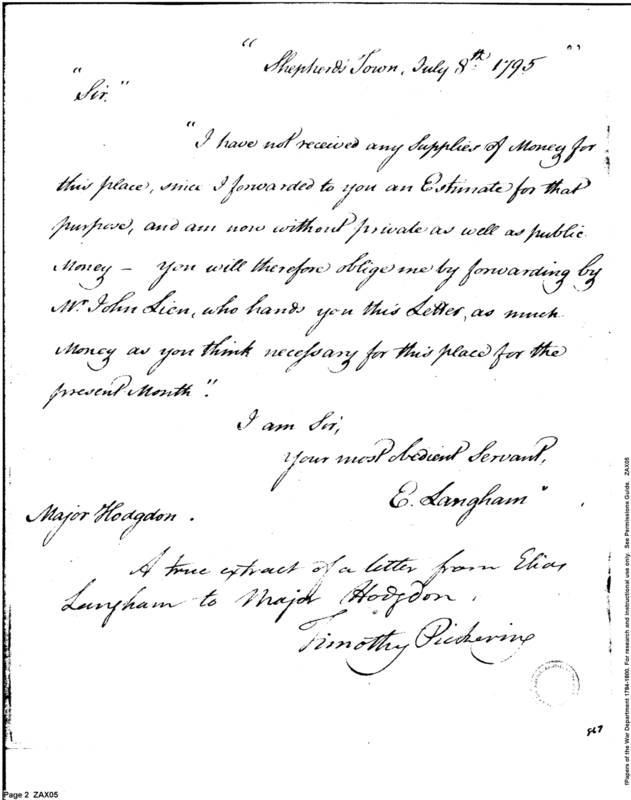 " Shepherd's Town, July 8th 1795 "
" Sir. "
"I have not received any Supplies of Money for
this place, since I forwarded to you an Estimate for that
purpose, and am now without private as well as public
Money – you will therefore oblige me by forwarding by
Mr. John Lien, who hands you this Letter, as much
Money as you think necessary for this place for the
present Month".
I am Sir,
your most obedient Servant,
E. Langham"
Major Hodgdon.
A true extract of a letter from Elias
Langham to Major Hodgdon.
Timothy Pickering
867
Page 2 ZAX05
Papers of the War Department 1784-1800. For research and instructional use only. See Permissions Guide. ZAX05